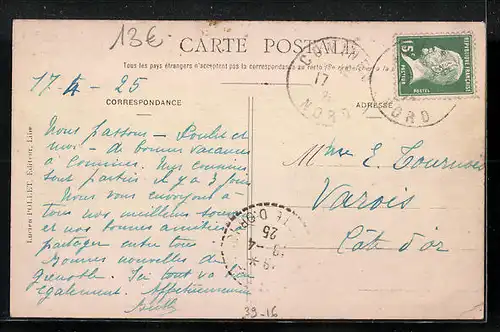 13€
CARTE POSTALE
Tous les pays étrangers n'acceptent pas la correspondance au recto
17 4 25
CORRESPONDANCE
ADRESSE
Lucien POLLET, Editeur, Lille
15c
POSTES
REPUBLIQUE FRANÇAISE
PASTEUR
COMINES
17
NORD
NORD
Nous passons - Poulet et
moi - de bonnes vacances
à Comines. Nos cousins
sont partis il y a 3 jours
Nous vous envoyons à
tous nos meilleurs
et nos bonnes amitiés
partager entre tous
Bonnes nouvelles de
Grenoble. Ici tout va
également. Affectueusement
Mme E. Tournois
Varois
Côte d'or
19-4
25
39-16